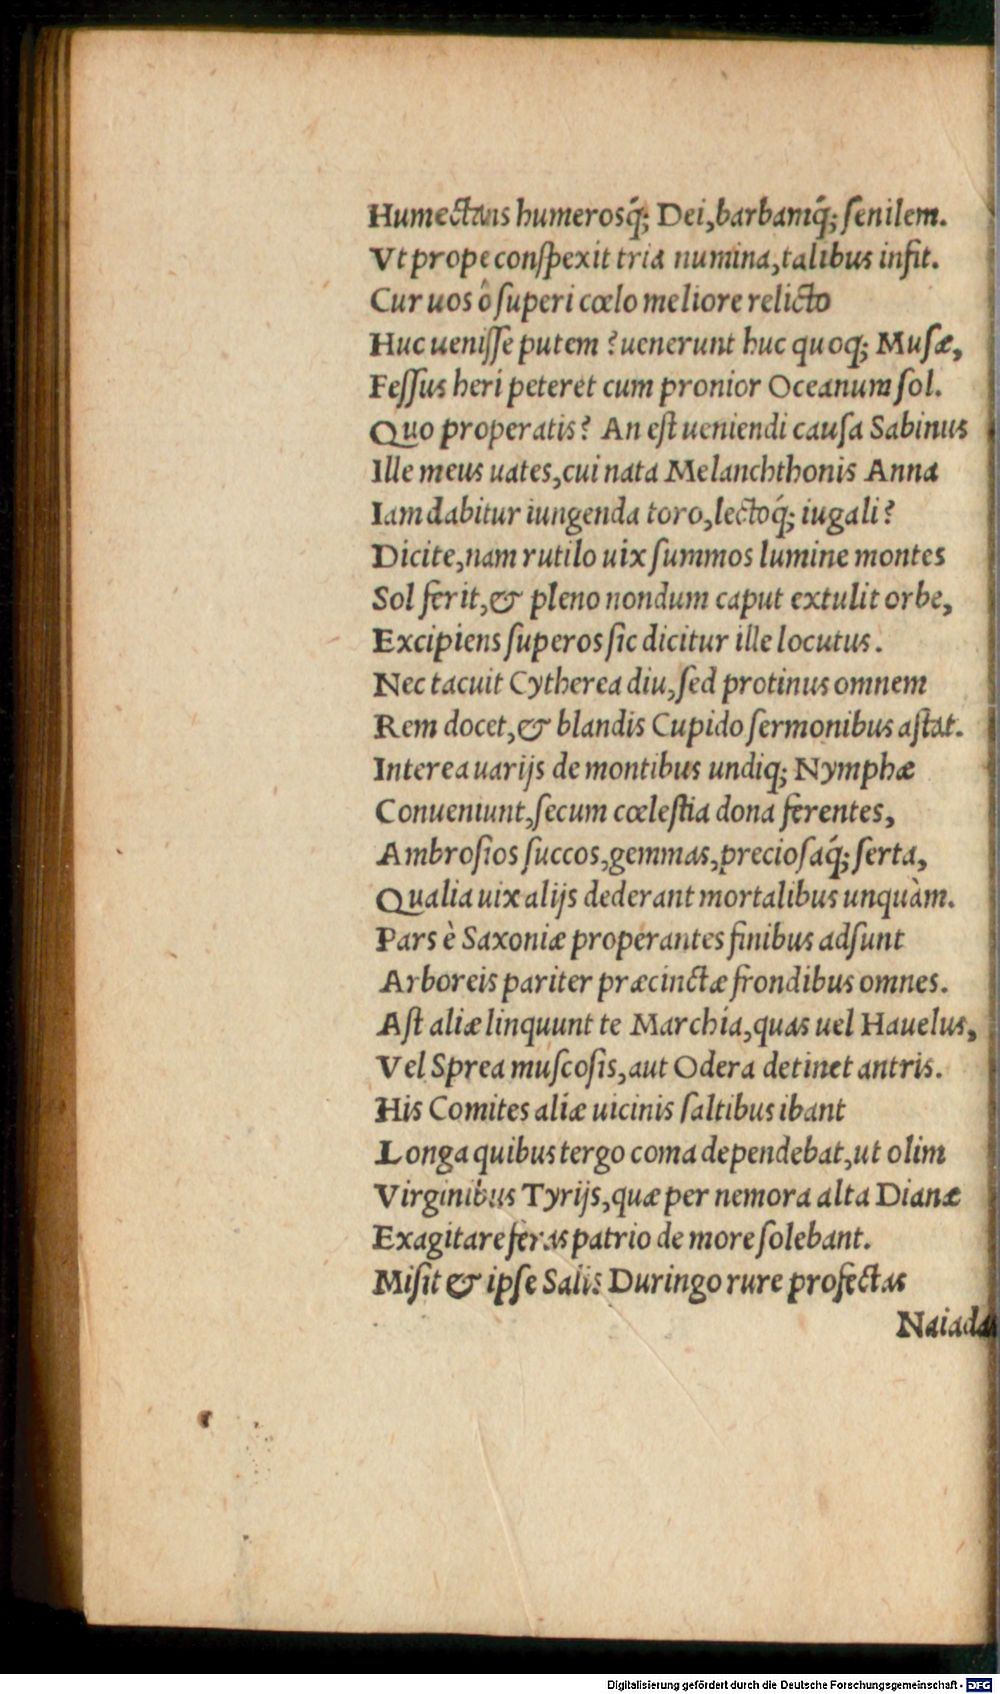 Humectans humerosq́; Dei, barbamq́; ſenilem.
Vt prope conſpexit tria numina, talibus infit.
Cur uos ô ſuperi cœlo meliore relicto
Huc ueniſſe putem? uenerunt huc quoq; Muſæ,
Feſſus heri peteret cum pronior Oceanum ſol.
Quo properatis? An eſt ueniendi cauſa Sabinus
Ille meus uates, cui nata Melanchthonis Anna
Iam dabitur iungenda toro, lectoq́; iugali?
Dicite, nam rutilo uix ſummos lumine montes
Sol ferit, & pleno nondum caput extulit orbe,
Excipiens ſuperos ſic dicitur ille locutus.
Nec tacuit Cytherea diu, ſed protinus omnem
Rem docet, & blandis Cupido ſermonibus aſtat.
Interea uarijs de montibus undiq; Nymphæ
Conueniunt, ſecum cœleſtia dona ferentes,
Ambroſios ſuccos, gemmas, precioſaq́; ſerta,
Qualia uix alijs dederant mortalibus unquàm.
Pars è Saxoniæ properantes finibus adſunt
Arboreis pariter præcinctæ frondibus omnes.
Aſt aliæ linquunt te Marchia, quas uel Hauelus,
Vel Sprea muſcoſis, aut Odera detinet antris.
His Comites aliæ uicinis ſaltibus ibant
Longa quibus tergo coma dependebat, ut olim
Virginibus Tyrijs, quæ per nemora alta Dianæ
Exagitare feras patrio de more ſolebant.
Miſit & ipſe Salis Duringo rure profectas
Naiadas
Digitalisierung gefördert durch die Deutsche Forschungsgemeinschaft - DFG